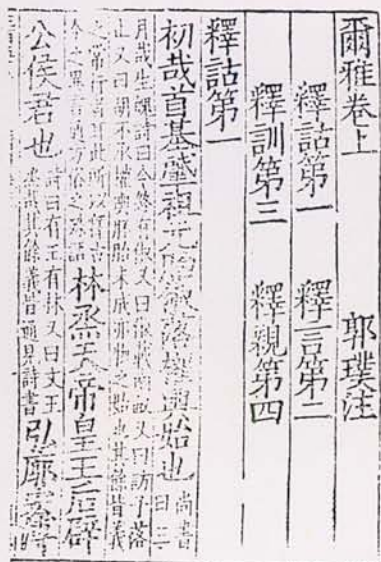 爾雅卷上 郭璞注
釋詁第一 釋言第二
釋訓第三 釋親第四
釋詁第一
初哉首基肇祖元胎俶落權輿始也 尚書
曰三
月哉生魄詩曰令終有俶又曰俶載南畝又曰訪予落
止又曰胡不承權輿胚胎未成亦物之始也其餘皆義
之常行者耳此所以釋古
今之異言通方俗之殊語
林烝天帝皇王后辟
公侯君也
詩曰有壬有林又曰文王
烝哉其餘義皆通見詩書
弘廓宏溥